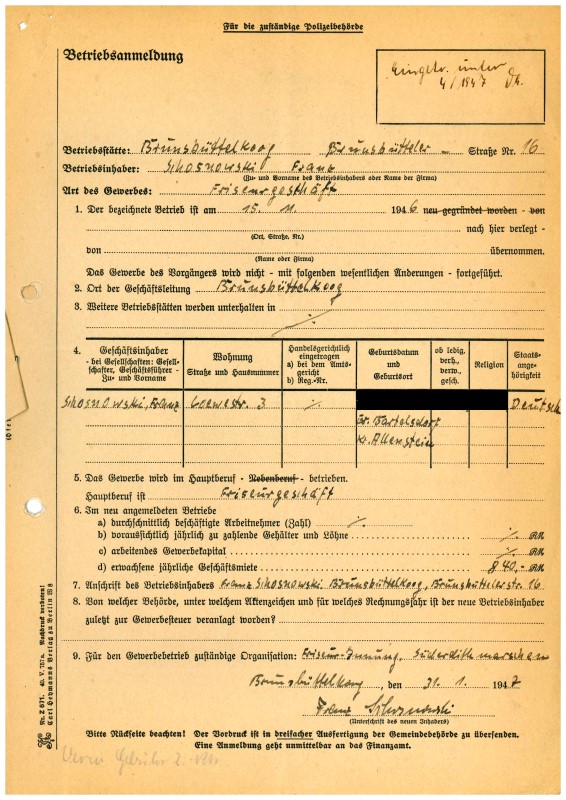 Für die zuständige Polizeibehörde
Betriebsanmeldung
Eingetr. unter
4/1947
Betriebsstätte: Brunsbüttelkoog Brunsbütteler - Straße Nr. 16
Betriebsinhaber: Skosnowski Franz
(Zu- und Vorname des Betriebsinhabers oder Name der Firma)
Art des Gewerbes: Friseurgeschäft
1. Der bezeichnete Betrieb ist am 15. 11. 1946 neu gegründet worden - von
nach hier verlegt -
(Ort, Straße, Nr.)
von übernommen.
(Name oder Firma)
Das Gewerbe des Vorgängers wird nicht - mit folgenden wesentlichen Änderungen - fortgeführt.
2. Ort der Geschäftsleitung Brunsbüttelkoog
3. Weitere Betriebstätten werden unterhalten in ./.
4. Geschäftsinhaber - bei Gesellschaften: Gesellschafter, Geschäftsführer - Zu- und Vorname
Wohnung Straße und Hausnummer
Handelsgerichtlich eingetragen a) bei dem Amtsgericht b) Reg.-Nr.
Geburtsdatum und Geburtsort
ob ledig, verh., verw., gesch.
Religion
Staatsangehörigkeit
Skosnowski, Franz Loewestr. 3 ./. Deutsch
Gr. Bartelsdorf
Kr. Allenstein
5. Das Gewerbe wird im Hauptberuf - Nebenberuf - betrieben.
Hauptberuf ist Friseurgeschäft
6. Im neu angemeldeten Betriebe
a) durchschnittlich beschäftigte Arbeitnehmer (Zahl) ./.
b) voraussichtlich jährlich zu zahlende Gehälter und Löhne ./. RM
c) arbeitendes Gewerbekapital ./. RM
d) erwachsene jährliche Geschäftsmiete 840,- RM
7. Anschrift des Betriebsinhabers Franz Skosnowski Brunsbüttelkoog, Brunsbüttelerstr. 16
8. Von welcher Behörde, unter welchem Aktenzeichen und für welches Rechnungsjahr ist der neue Betriebsinhaber
zuletzt zur Gewerbesteuer veranlagt worden?
9. Für den Gewerbebetrieb zuständige Organisation: Friseur-Innung, Süderdithmarschen
Brunsbüttelkoog, den 31. 1. 1947
Franz Skosnowski
(Unterschrift des neuen Inhabers)
Bitte Rückseite beachten! Der Vordruck ist in dreifacher Ausfertigung der Gemeindebehörde zu übersenden.
Eine Anmeldung geht unmittelbar an das Finanzamt.
Nachdruck verboten!
Carl Heymanns Verlag zu Berlin W 8